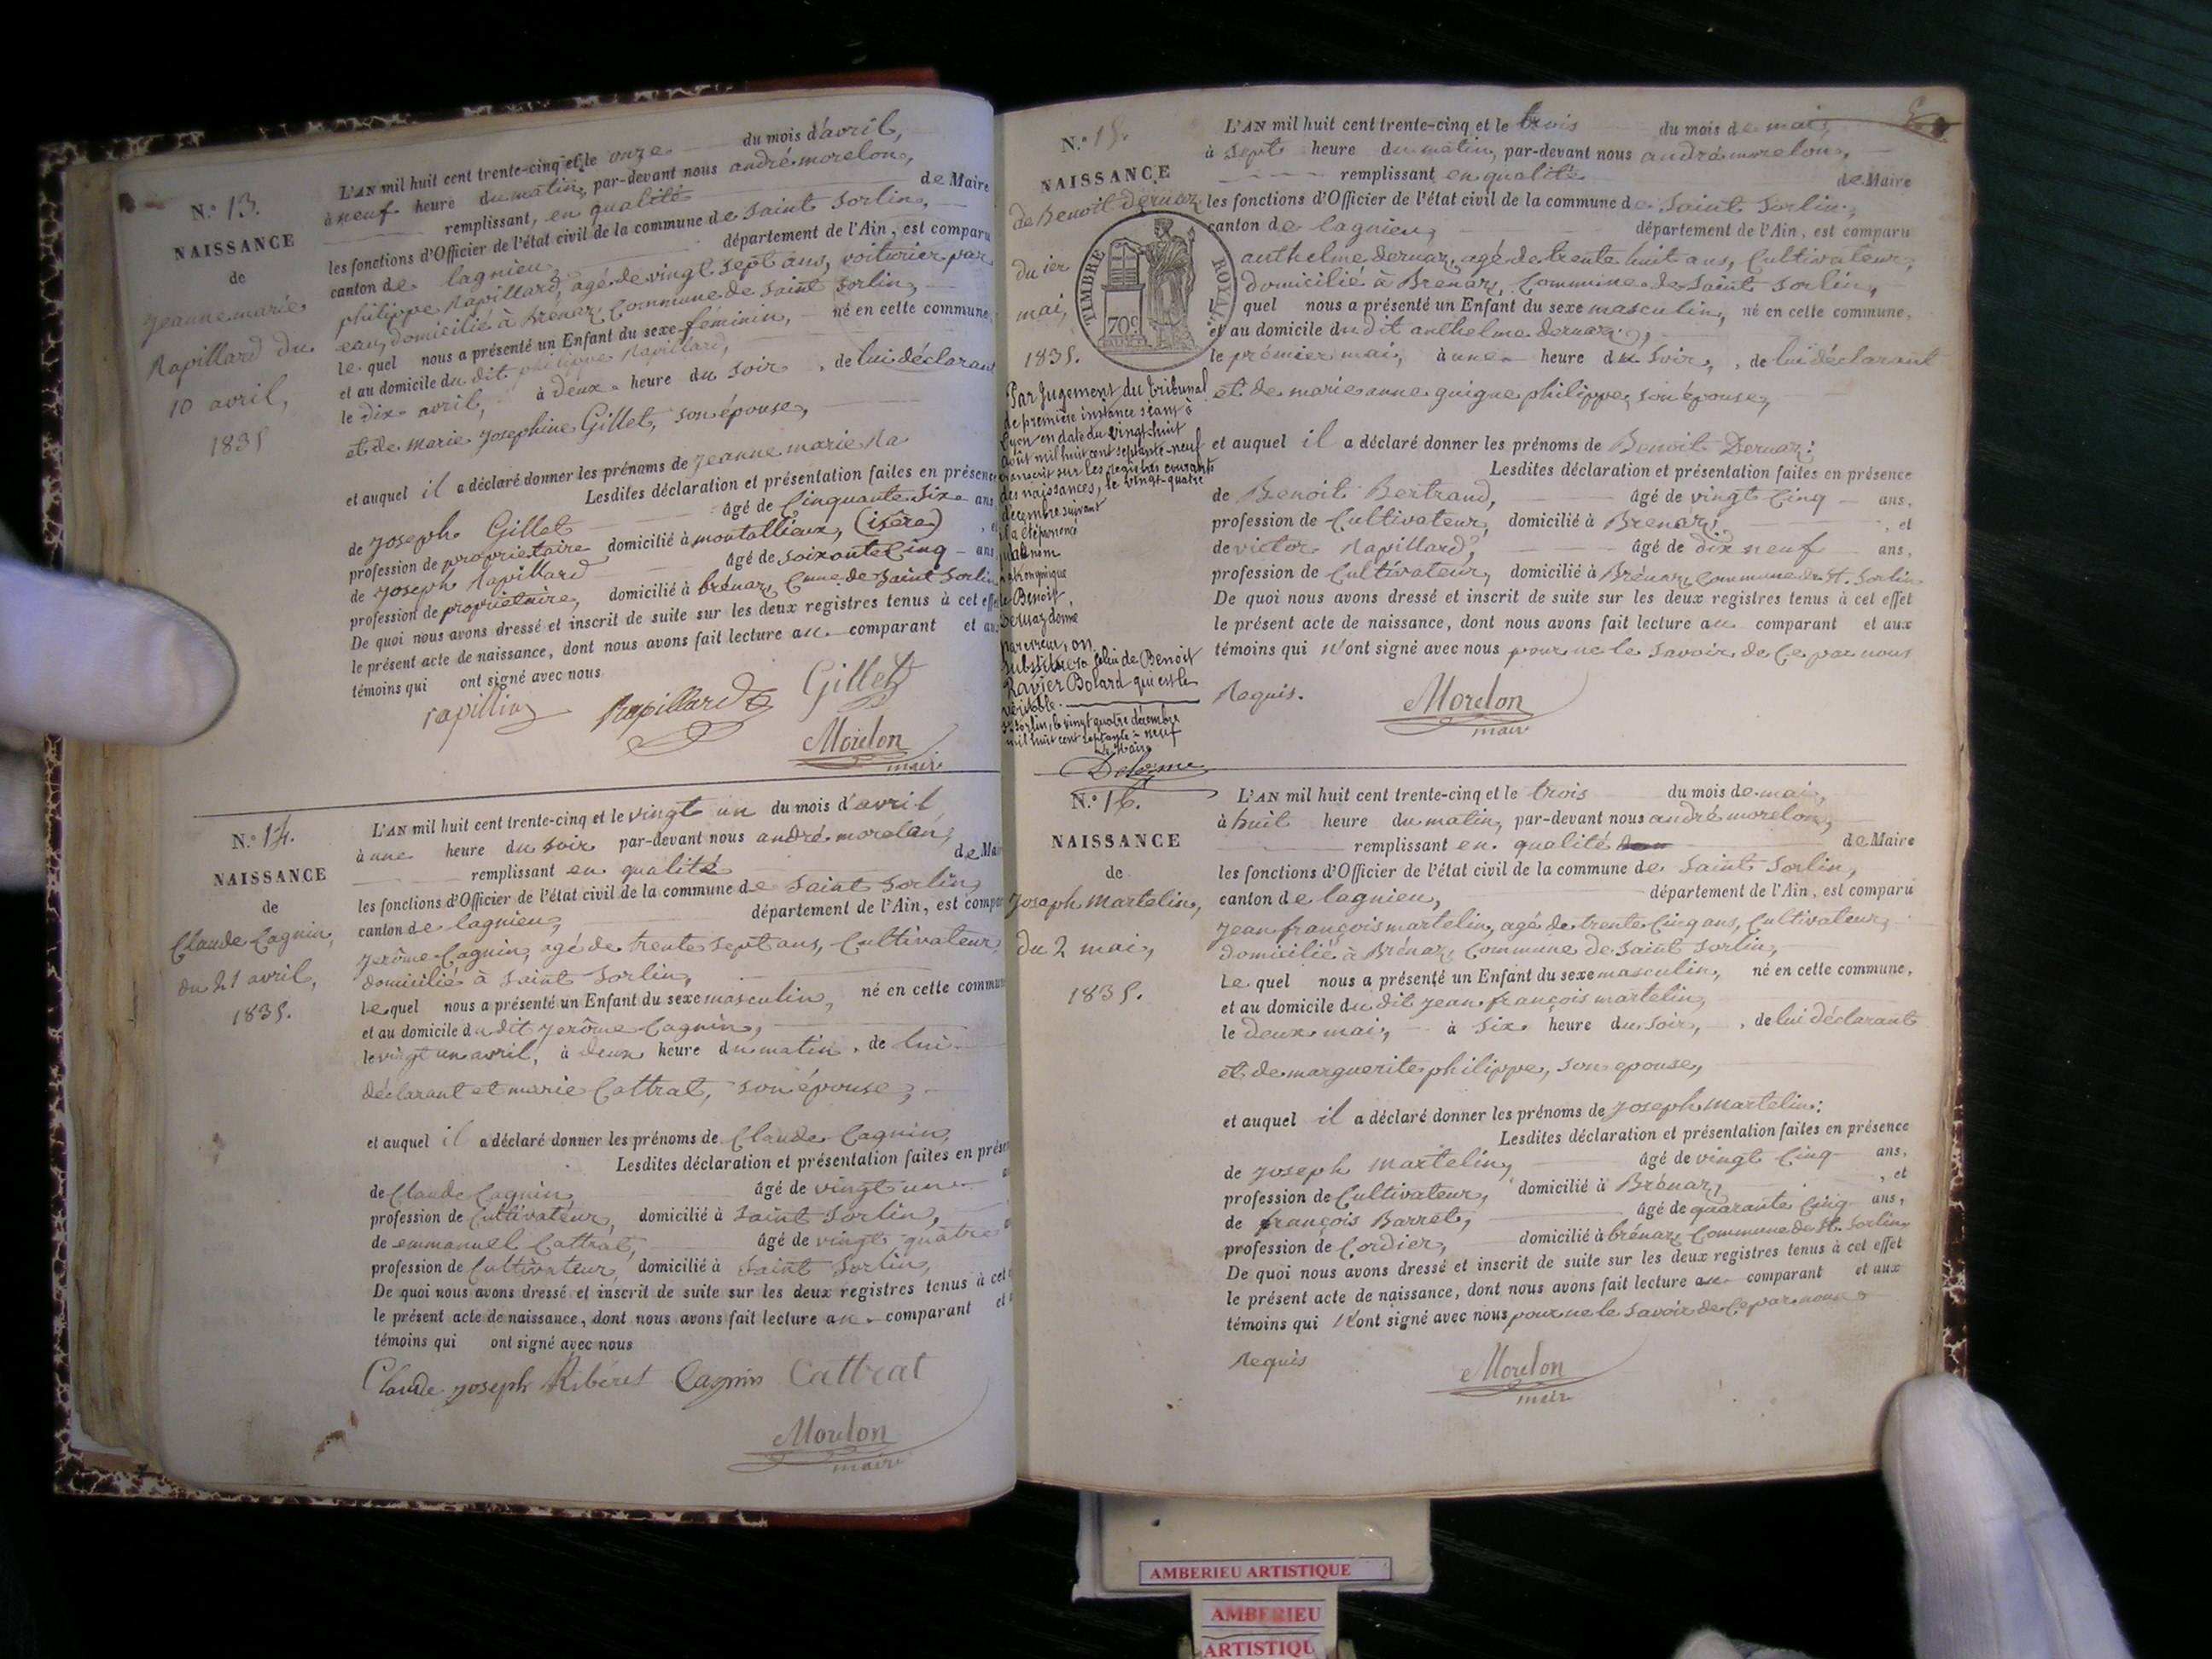 N.° 13.
NAISSANCE
de
Jeanne marie
Rapillard du
10 avril,
1835
L'AN mil huit cent trente-cinq et le onze du mois d'avril,
à neuf heure du matin, par-devant nous andré morelon,
remplissant, en qualité de Maire
les fonctions d'Officier de l'état civil de la commune de Saint Sorlin,
canton de lagnieu département de l'Ain, est comparu
philippe Rapillard, agé de vingt sept ans, voiturier par
eau, domicilié à Brénaz, Commune de Saint Sorlin,
le quel nous a présenté un Enfant du sexe féminin, né en cette commune,
et au domicile du dit philippe Rapillard,
le dix avril, à deux heure du soir, de lui déclarant
et de Marie Josephine Gillet, son épouse,
et auquel il a déclaré donner les prénoms de Jeanne marie Ra
Lesdites déclaration et présentation faites en présence
de Joseph Gillet âgé de Cinquante Six ans
profession de proprietaire domicilié à montallieux, (isère)
de Joseph Rapillard âgé de soixante Cinq ans
profession de proprietaire, domicilié à brénaz, Cune de Saint Sorlin
De quoi nous avons dressé et inscrit de suite sur les deux registres tenus à cet effet
le présent acte de naissance, dont nous avons fait lecture au comparant et aux
témoins qui ont signé avec nous
Rapillard Gillet
Morelon
maire
N.° 14.
NAISSANCE
de
Claude Cagnin,
du 21 avril,
1835.
L'AN mil huit cent trente-cinq et le vingt un du mois d'avril
à une heure du soir par-devant nous andré morelon,
remplissant en qualité de Mai
les fonctions d'Officier de l'état civil de la commune de Saint Sorlin,
canton de lagnieu, département de l'Ain, est compar
Jerôme Cagnin, agé de trente sept ans, Cultivateur,
domicilié à Saint Sorlin,
Le quel nous a présenté un Enfant du sexe masculin, né en cette commune
et au domicile du dit Jerôme Cagnin,
le vingt un avril, à deux heure du matin, de lui
déclarant et marie Cattrat, son épouse,
et auquel il a déclaré donner les prénoms de Claude Cagnin,
Lesdites déclaration et présentation faites en prése
de Claude Cagnin âgé de vingt un
profession de Cultivateur, domicilié à Saint Sorlin,
de emmanuel Cattrat, âgé de vingt quatre
profession de Cultivateur, domicilié à Saint Sorlin,
De quoi nous avons dressé et inscrit de suite sur les deux registres tenus à cet
le présent acte de naissance, dont nous avons fait lecture au comparant et
témoins qui ont signé avec nous
Claude Joseph Ribéret Cagnin Cattrat
Morelon
maire
N.° 15.
NAISSANCE
de Benoit Dernaz
du 1er
mai,
1835.
TIMBRE ROYAL
70c
Par Jugement du tribunal
de première instance séant à
Lyon en date du vingt-huit
août mil huit cent septante-neuf
transcrit sur les registres courants
des naissances, le vingt-quatre
décembre suivant
par erreur, on
substituera celui de Benoît
Xavier Bolard qui est le
véritable.
St Sorlin, le vingt quatre décembre
mil huit cent septante-neuf
Le Maire
Delorme
L'AN mil huit cent trente-cinq et le trois du mois de mai,
à sept heure du matin, par-devant nous andré morelon,
remplissant en qualité de Maire
les fonctions d'Officier de l'état civil de la commune de Saint Sorlin,
canton de lagnieu, département de l'Ain, est comparu
anthelme Dernaz, agé de trente huit ans, Cultivateur,
domicilié à Brénaz, Commune de Saint Sorlin,
quel nous a présenté un Enfant du sexe masculin, né en cette commune,
et au domicile du dit anthelme Dernaz,
le prémier mai, à une heure du soir, de lui déclarant
et de marie anne guigue philippe, son épouse,
et auquel il a déclaré donner les prénoms de Benoit Dernaz;
Lesdites déclaration et présentation faites en présence
de Benoit Bertrand, âgé de vingt Cinq ans,
profession de Cultivateur, domicilié à Brénaz, , et
de victor Rapillard, âgé de dix neuf ans,
profession de Cultivateur, domicilié à Brénaz, Commune de St. Sorlin
De quoi nous avons dressé et inscrit de suite sur les deux registres tenus à cet effet
le présent acte de naissance, dont nous avons fait lecture au comparant et aux
témoins qui n'ont signé avec nous pour ne le savoir de Ce par nous
Requis.
Morelon
maire
N.° 16.
NAISSANCE
de
Joseph Martelin,
du 2 mai,
1835.
L'AN mil huit cent trente-cinq et le trois du mois de mai,
à huit heure du matin, par-devant nous andré morelon,
remplissant en qualité de Maire
les fonctions d'Officier de l'état civil de la commune de Saint Sorlin,
canton de lagnieu, département de l'Ain, est comparu
Jean françois martelin, agé de trente Cinq ans, Cultivateur,
domicilié à Brénaz, Commune de Saint Sorlin,
Le quel nous a présenté un Enfant du sexe masculin, né en cette commune,
et au domicile du dit Jean françois martelin,
le deux mai, à six heure du soir, , de lui déclarant
et de marguerite philippe, son epouse,
et auquel il a déclaré donner les prénoms de Joseph Martelin:
Lesdites déclaration et présentation faites en présence
de Joseph Martelin, âgé de vingt Cinq ans,
profession de Cultivateur, domicilié à Brénaz, , et
de françois Barret, âgé de quarante Cinq ans,
profession de Cordier, domicilié à brénaz, Commune de St. Sorlin,
De quoi nous avons dressé et inscrit de suite sur les deux registres tenus à cet effet
le présent acte de naissance, dont nous avons fait lecture au comparant et aux
témoins qui n'ont signé avec nous pour ne le savoir de Ce par nous
Requis
Morelon
maire
AMBERIEU ARTISTIQUE
AMBERIEU
ARTISTIQU